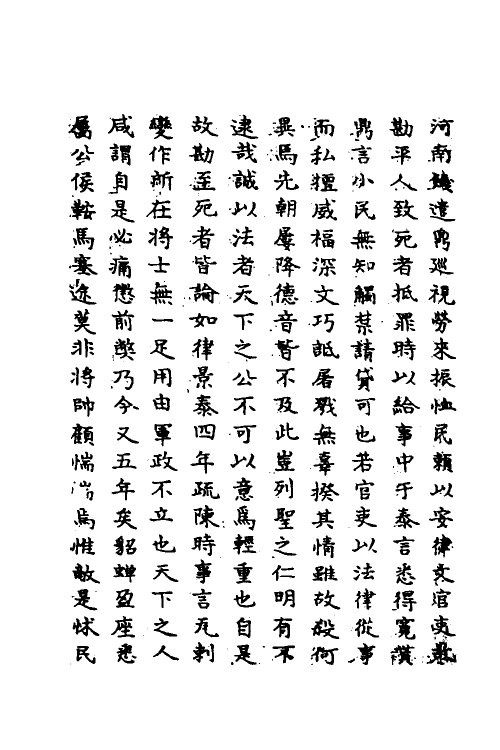 河南饑遣鼎巡視勞來振恤民賴以安律文官吏
勘平人致死者抵罪時以給事中于泰言悉得寬貸
鼎言小民無知觸禁請貸可也若官吏以法律從事
而私擅威福深文巧詆屠戮無辜揆其情雖故殺何
異焉先朝屢降德音皆不及此豈列聖之仁明有不
逮哉誠以法者天下之公不可以意爲輕重也自是
故勘至死者皆論如律景泰四年疏陳時事言瓦剌
變作所在將士無一足用由軍政不立也天下之人
咸謂自是必痛懲前弊乃今又五年矣貂蟬盈座悉
屬公侯鞍馬塞途莫非將帥顧惴惴焉惟敵是怵民